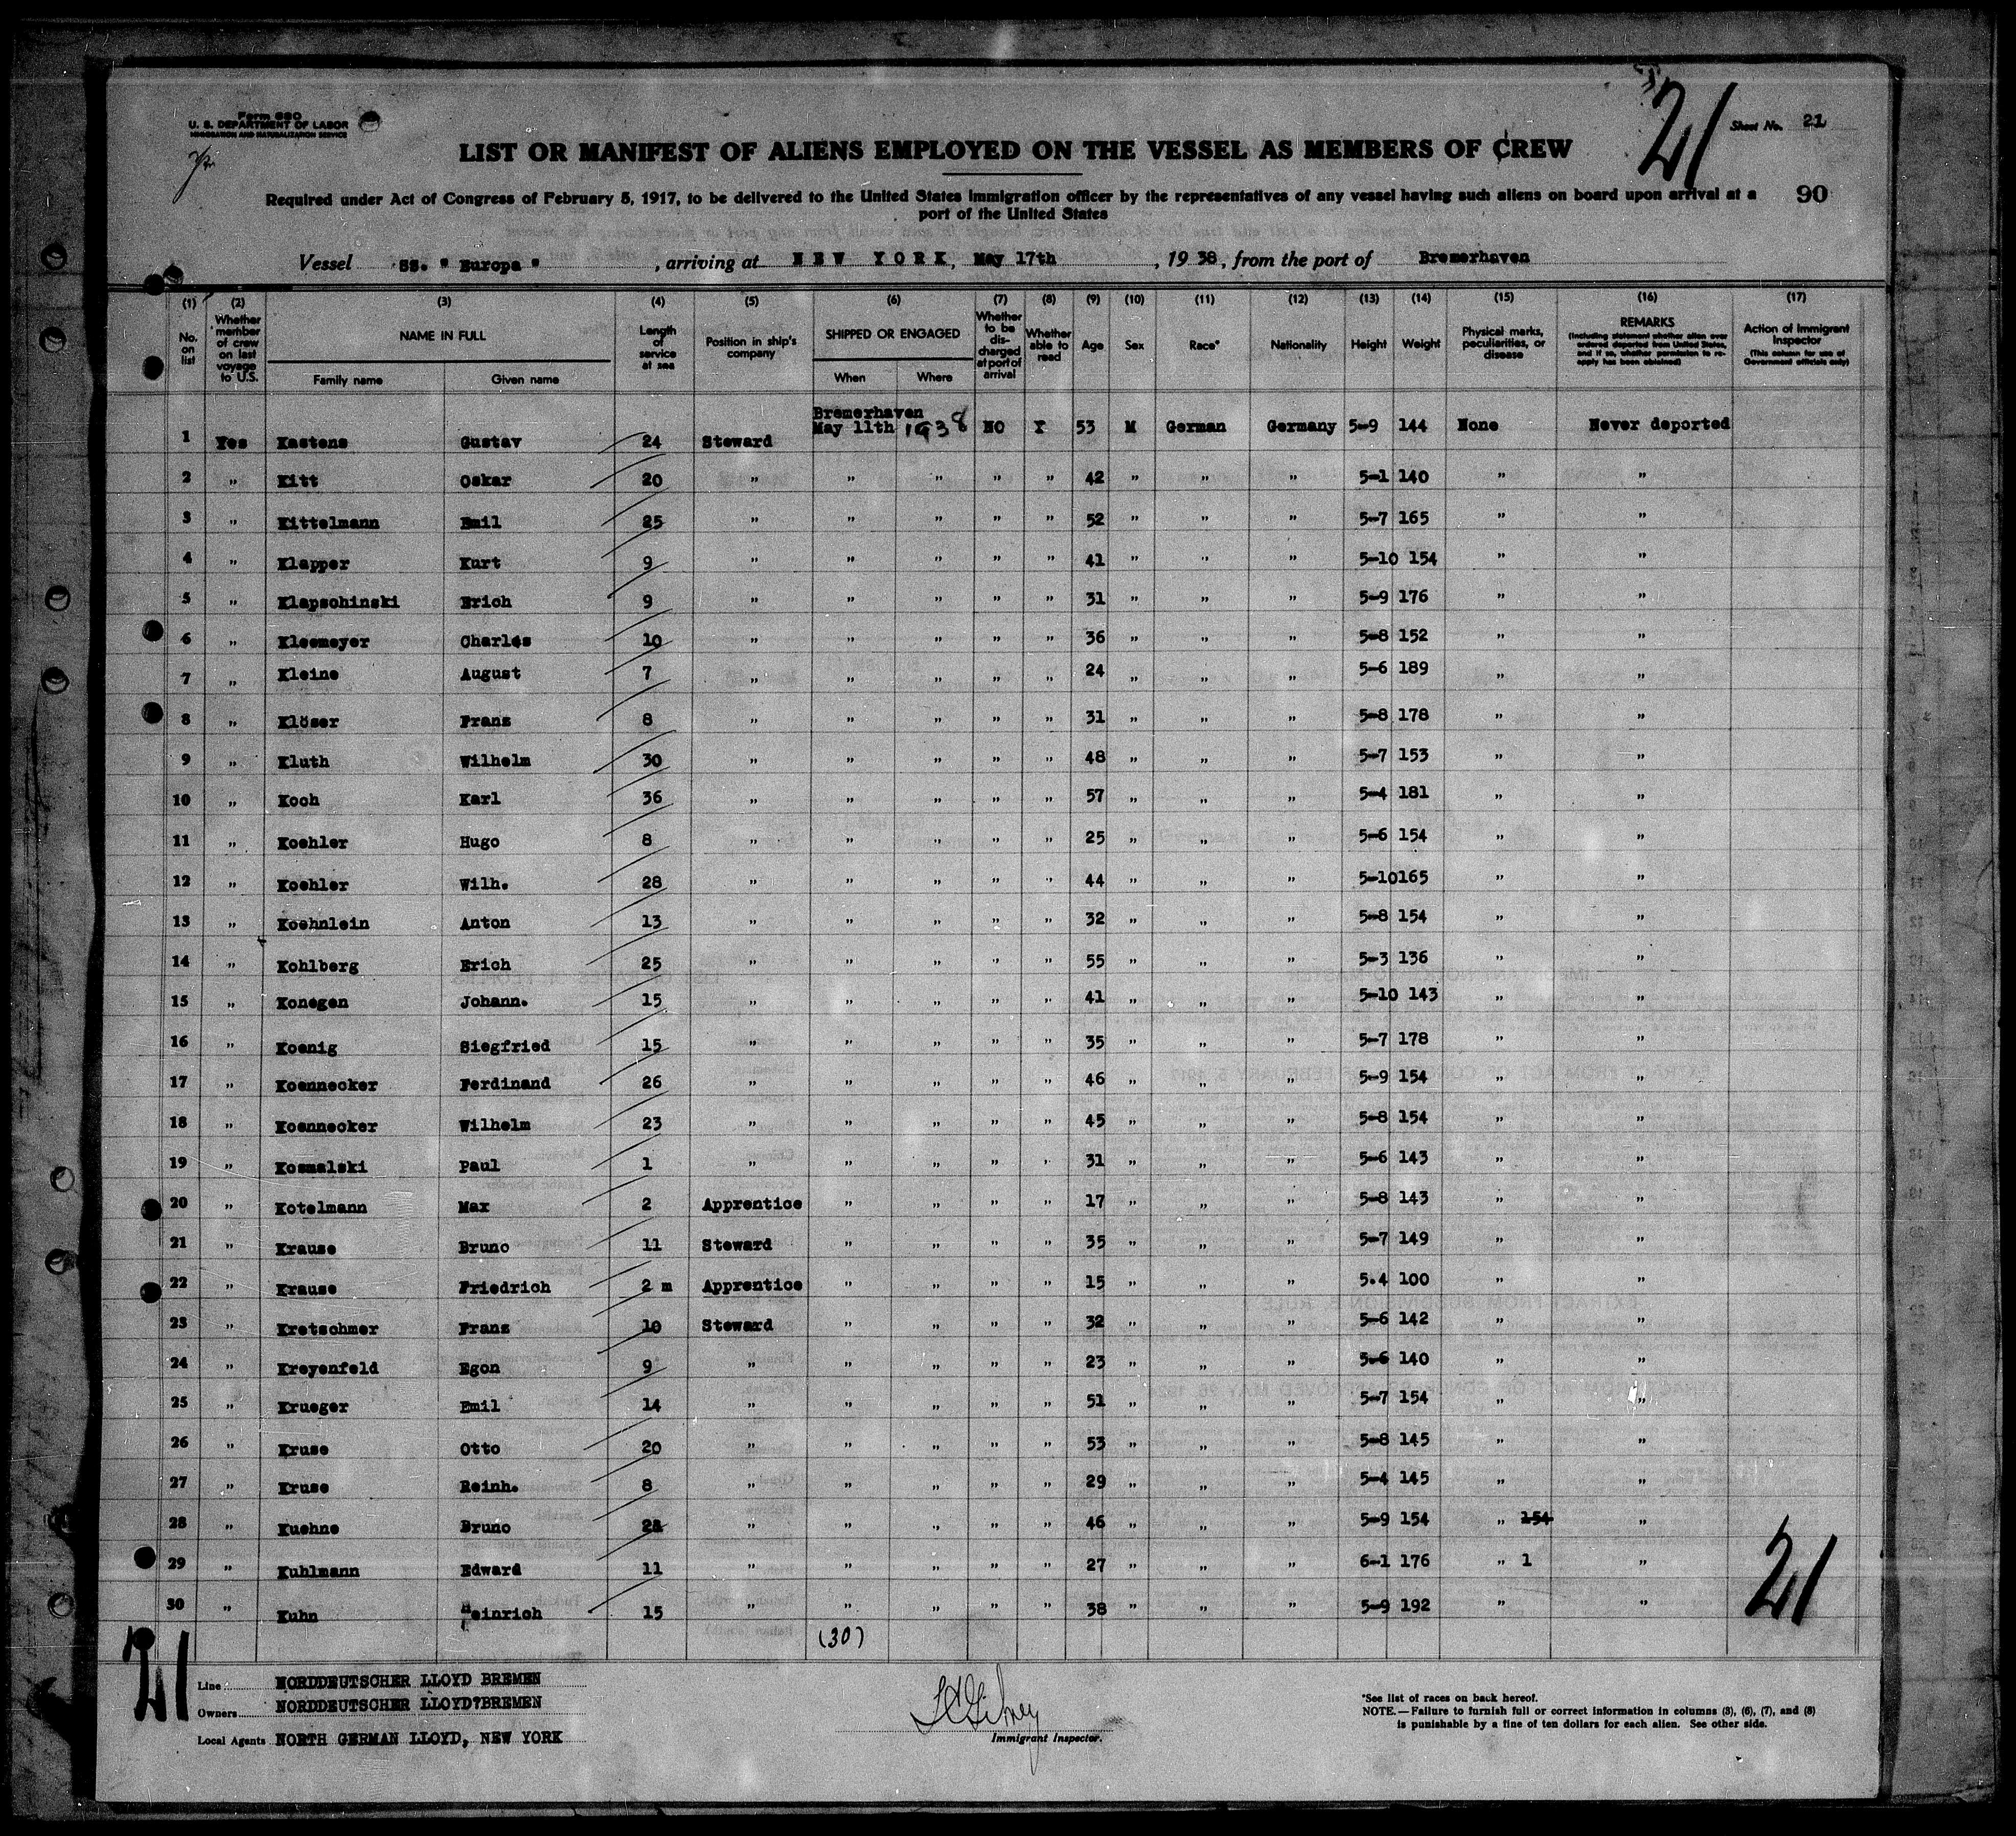 Form 680
U. S. DEPARTMENT OF LABOR
IMMIGRATION AND NATURALIZATION SERVICE
21
Sheet No. 21
LIST OR MANIFEST OF ALIENS EMPLOYED ON THE VESSEL AS MEMBERS OF CREW
Required under Act of Congress of February 5, 1917, to be delivered to the United States immigration officer by the representatives of any vessel having such aliens on board upon arrival at a
port of the United States
90
Vessel SS. " Europa " , arriving at NEW YORK, May 17th , 1938, from the port of Bremerhaven
(1) (2) (3) (4) (5) (6) (7) (8) (9) (10) (11) (12) (13) (14) (15) (16) (17)
No. on list
Whether member of crew on last voyage to U.S.
NAME IN FULL
Family name Given name
Length of service at sea
Position in ship's company
SHIPPED OR ENGAGED
When Where
Whether to be discharged at port of arrival
Whether able to read
Age Sex Race* Nationality Height Weight
Physical marks, peculiarities, or disease
REMARKS
(Including statement whether alien ever ordered deported from United States, and if so, whether permission to reapply has been obtained)
Action of Immigrant Inspector
(This column for use of Government officials only)
Bremerhaven
1 Yes Kastens Gustav 24 Steward May 11th 1938 NO Y 53 M German Germany 5-9 144 None Never deported
2 " Kitt Oskar 20 " " " " " 42 " " " 5-1 140 " "
3 " Kittelmann Emil 25 " " " " " 52 " " " 5-7 165 " "
4 " Klapper Kurt 9 " " " " " 41 " " " 5-10 154 " "
5 " Klapschinski Erich 9 " " " " " 31 " " " 5-9 176 " "
6 " Kleemeyer Charles 10 " " " " " 36 " " " 5-8 152 " "
7 " Kleine August 7 " " " " " 24 " " " 5-6 189 " "
8 " Klöser Franz 8 " " " " " 31 " " " 5-8 178 " "
9 " Kluth Wilhelm 30 " " " " " 48 " " " 5-7 153 " "
10 " Koch Karl 36 " " " " " 57 " " " 5-4 181 " "
11 " Koehler Hugo 8 " " " " " 25 " " " 5-6 154 " "
12 " Koehler Wilh. 28 " " " " " 44 " " " 5-10 165 " "
13 " Koehnlein Anton 13 " " " " " 32 " " " 5-8 154 " "
14 " Kohlberg Erich 25 " " " " " 55 " " " 5-3 136 " "
15 " Konegen Johann. 15 " " " " " 41 " " " 5-10 143 " "
16 " Koenig Siegfried 15 " " " " " 35 " " " 5-7 178 " "
17 " Koennecker Ferdinand 26 " " " " " 46 " " " 5-9 154 " "
18 " Koennecker Wilhelm 23 " " " " " 45 " " " 5-8 154 " "
19 " Kosmalski Paul 1 " " " " " 31 " " " 5-6 143 " "
20 " Kotelmann Max 2 Apprentice " " " " 17 " " " 5-8 143 " "
21 " Krause Bruno 11 Steward " " " " 35 " " " 5-7 149 " "
22 " Krause Friedrich 2 m Apprentice " " " " 15 " " " 5.4 100 " "
23 " Kretschmer Franz 10 Steward " " " " 32 " " " 5-6 142 " "
24 " Kreyenfeld Egon 9 " " " " " 23 " " " 5-6 140 " "
25 " Krueger Emil 14 " " " " " 51 " " " 5-7 154 " "
26 " Kruse Otto 20 " " " " " 53 " " " 5-8 145 " "
27 " Kruse Reinh. 8 " " " " " 29 " " " 5-4 145 " "
28 " Kuehne Bruno " " " " " 46 " " " 5-9 154 " 154 "
29 " Kuhlmann Edward 11 " " " " " 27 " " " 6-1 176 " 1 "
30 " Kuhn Heinrich 15 " " " " " 38 " " " 5-9 192 " "
21
(30)
21
Line NORDDEUTSCHER LLOYD BREMEN
Owners NORDDEUTSCHER LLOYD?BREMEN
Local Agents NORTH GERMAN LLOYD, NEW YORK
Immigrant Inspector.
*See list of races on back hereof.
NOTE.—Failure to furnish full or correct information in columns (3), (6), (7), and (8)
is punishable by a fine of ten dollars for each alien. See other side.